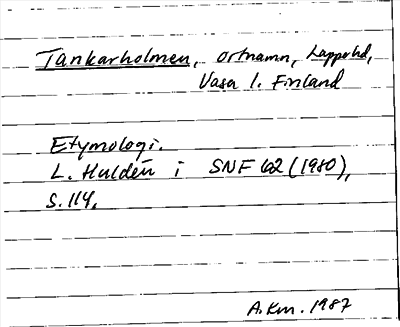 Tankarholmen, ortnamn, Lappfjd,
Vasa l. Finland
Etymologi.
L. Huldén i SNF 62 (1980),
s. 114.
A.Km. 1987